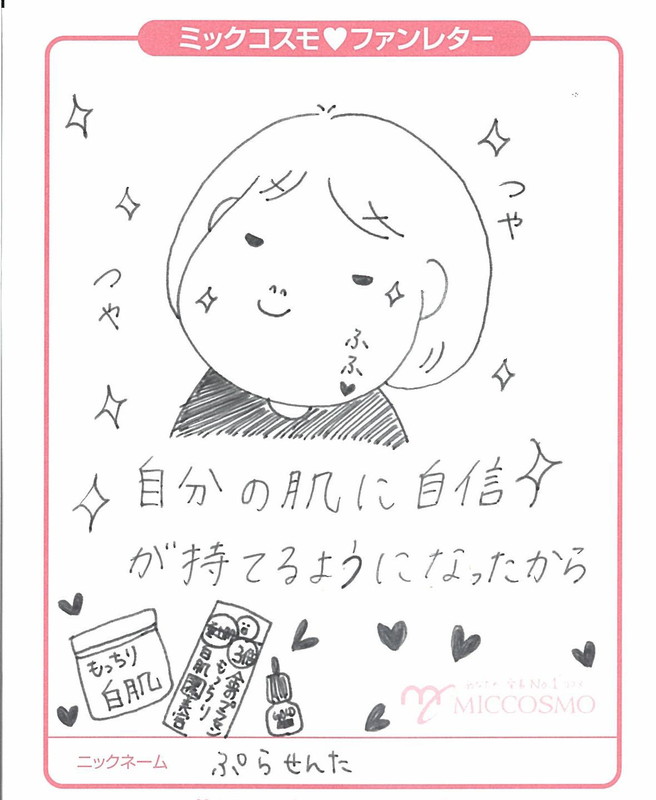 ミックコスモ♥ファンレター
つや
つや
ふふ♥
自分の肌に自信
が持てるようになったから
もっちり
白肌
3個
もっちり
白肌
MICCOSMO
ニックネーム
ぷらせんた